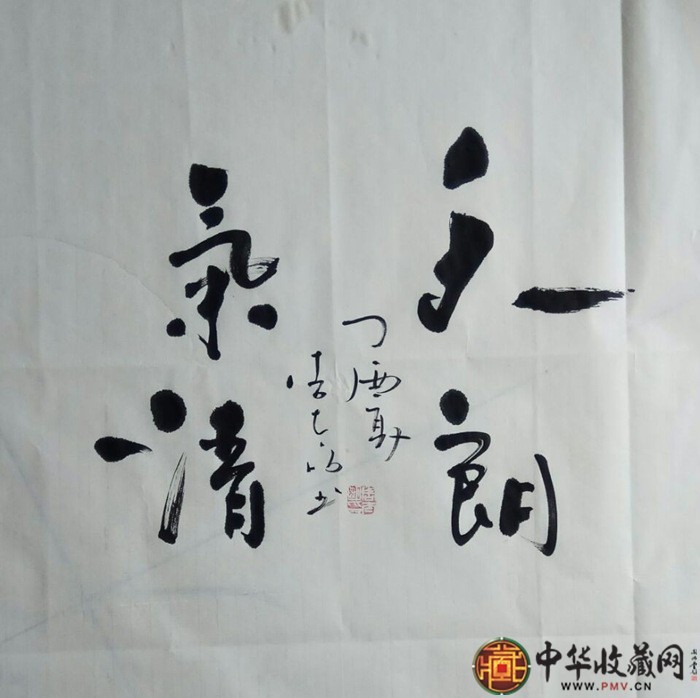 天朗
氣清
丁酉夏
书
中华收藏网
WWW.PMV.CN